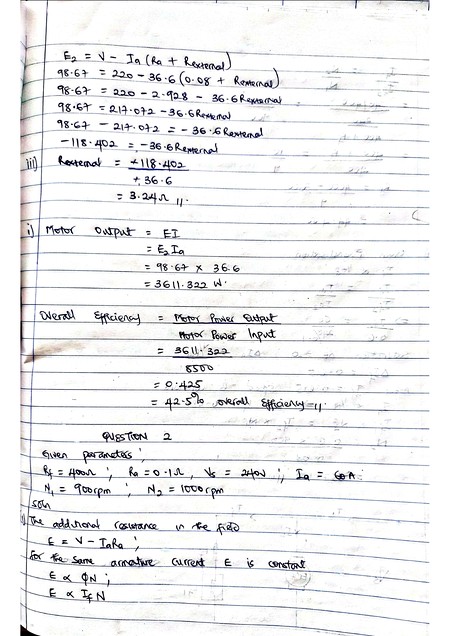 E₂ = V - Ia (Ra + Rexternal)
98.67 = 220 - 36.6 (0.08 + Rexternal)
98.67 = 220 - 2.928 - 36.6 Rexternal
98.67 = 217.072 - 36.6 Rexternal
98.67 - 217.072 = - 36.6 Rexternal
-118.402 = - 36.6 Rexternal
iii) Rexternal = +118.402
+ 36.6
= 3.24Ω //.
i) Motor Output = EI
= E₂ Ia
= 98.67 × 36.6
= 3611.322 W.
Overall Efficiency = Motor Power Output
Motor Power Input
= 3611.322
8500
= 0.425
= 42.5% overall efficiency //
QUESTION 2
Given parameters;
Rf = 400Ω ; Ra = 0.1Ω , Vs = 240V ; Ia = 60A.
N₁ = 900rpm ; N₂ = 1000rpm
Soln
i) The additional resistance in the field
E = V - IaRa ;
For the same armature current E is constant
E ∝ ΦN ;
E ∝ If N